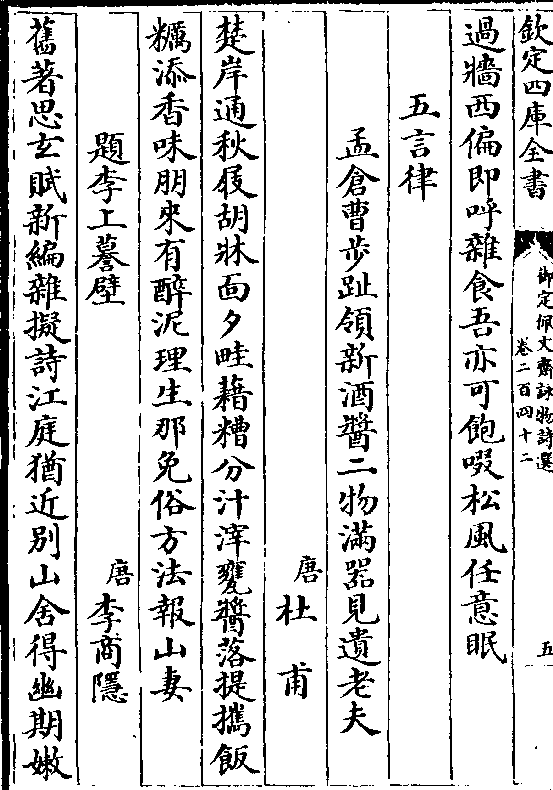 欽定四庫全書
御定佩文齋詠物詩選
卷二百四十二
五
過牆西偏即呼雜食吾亦可飽啜松風任意眠
五言律
孟倉曹步趾領新酒醬二物滿器見遺老夫
唐杜甫
楚岸通秋屐胡牀面夕畦藉糟分汁滓甕醬落提攜飯
糲添香味朋來有醉泥理生那免俗方法報山妻
題李上謩壁
唐李商隱
舊著思玄賦新編雜擬詩江庭猶近别山舍得幽期嫩